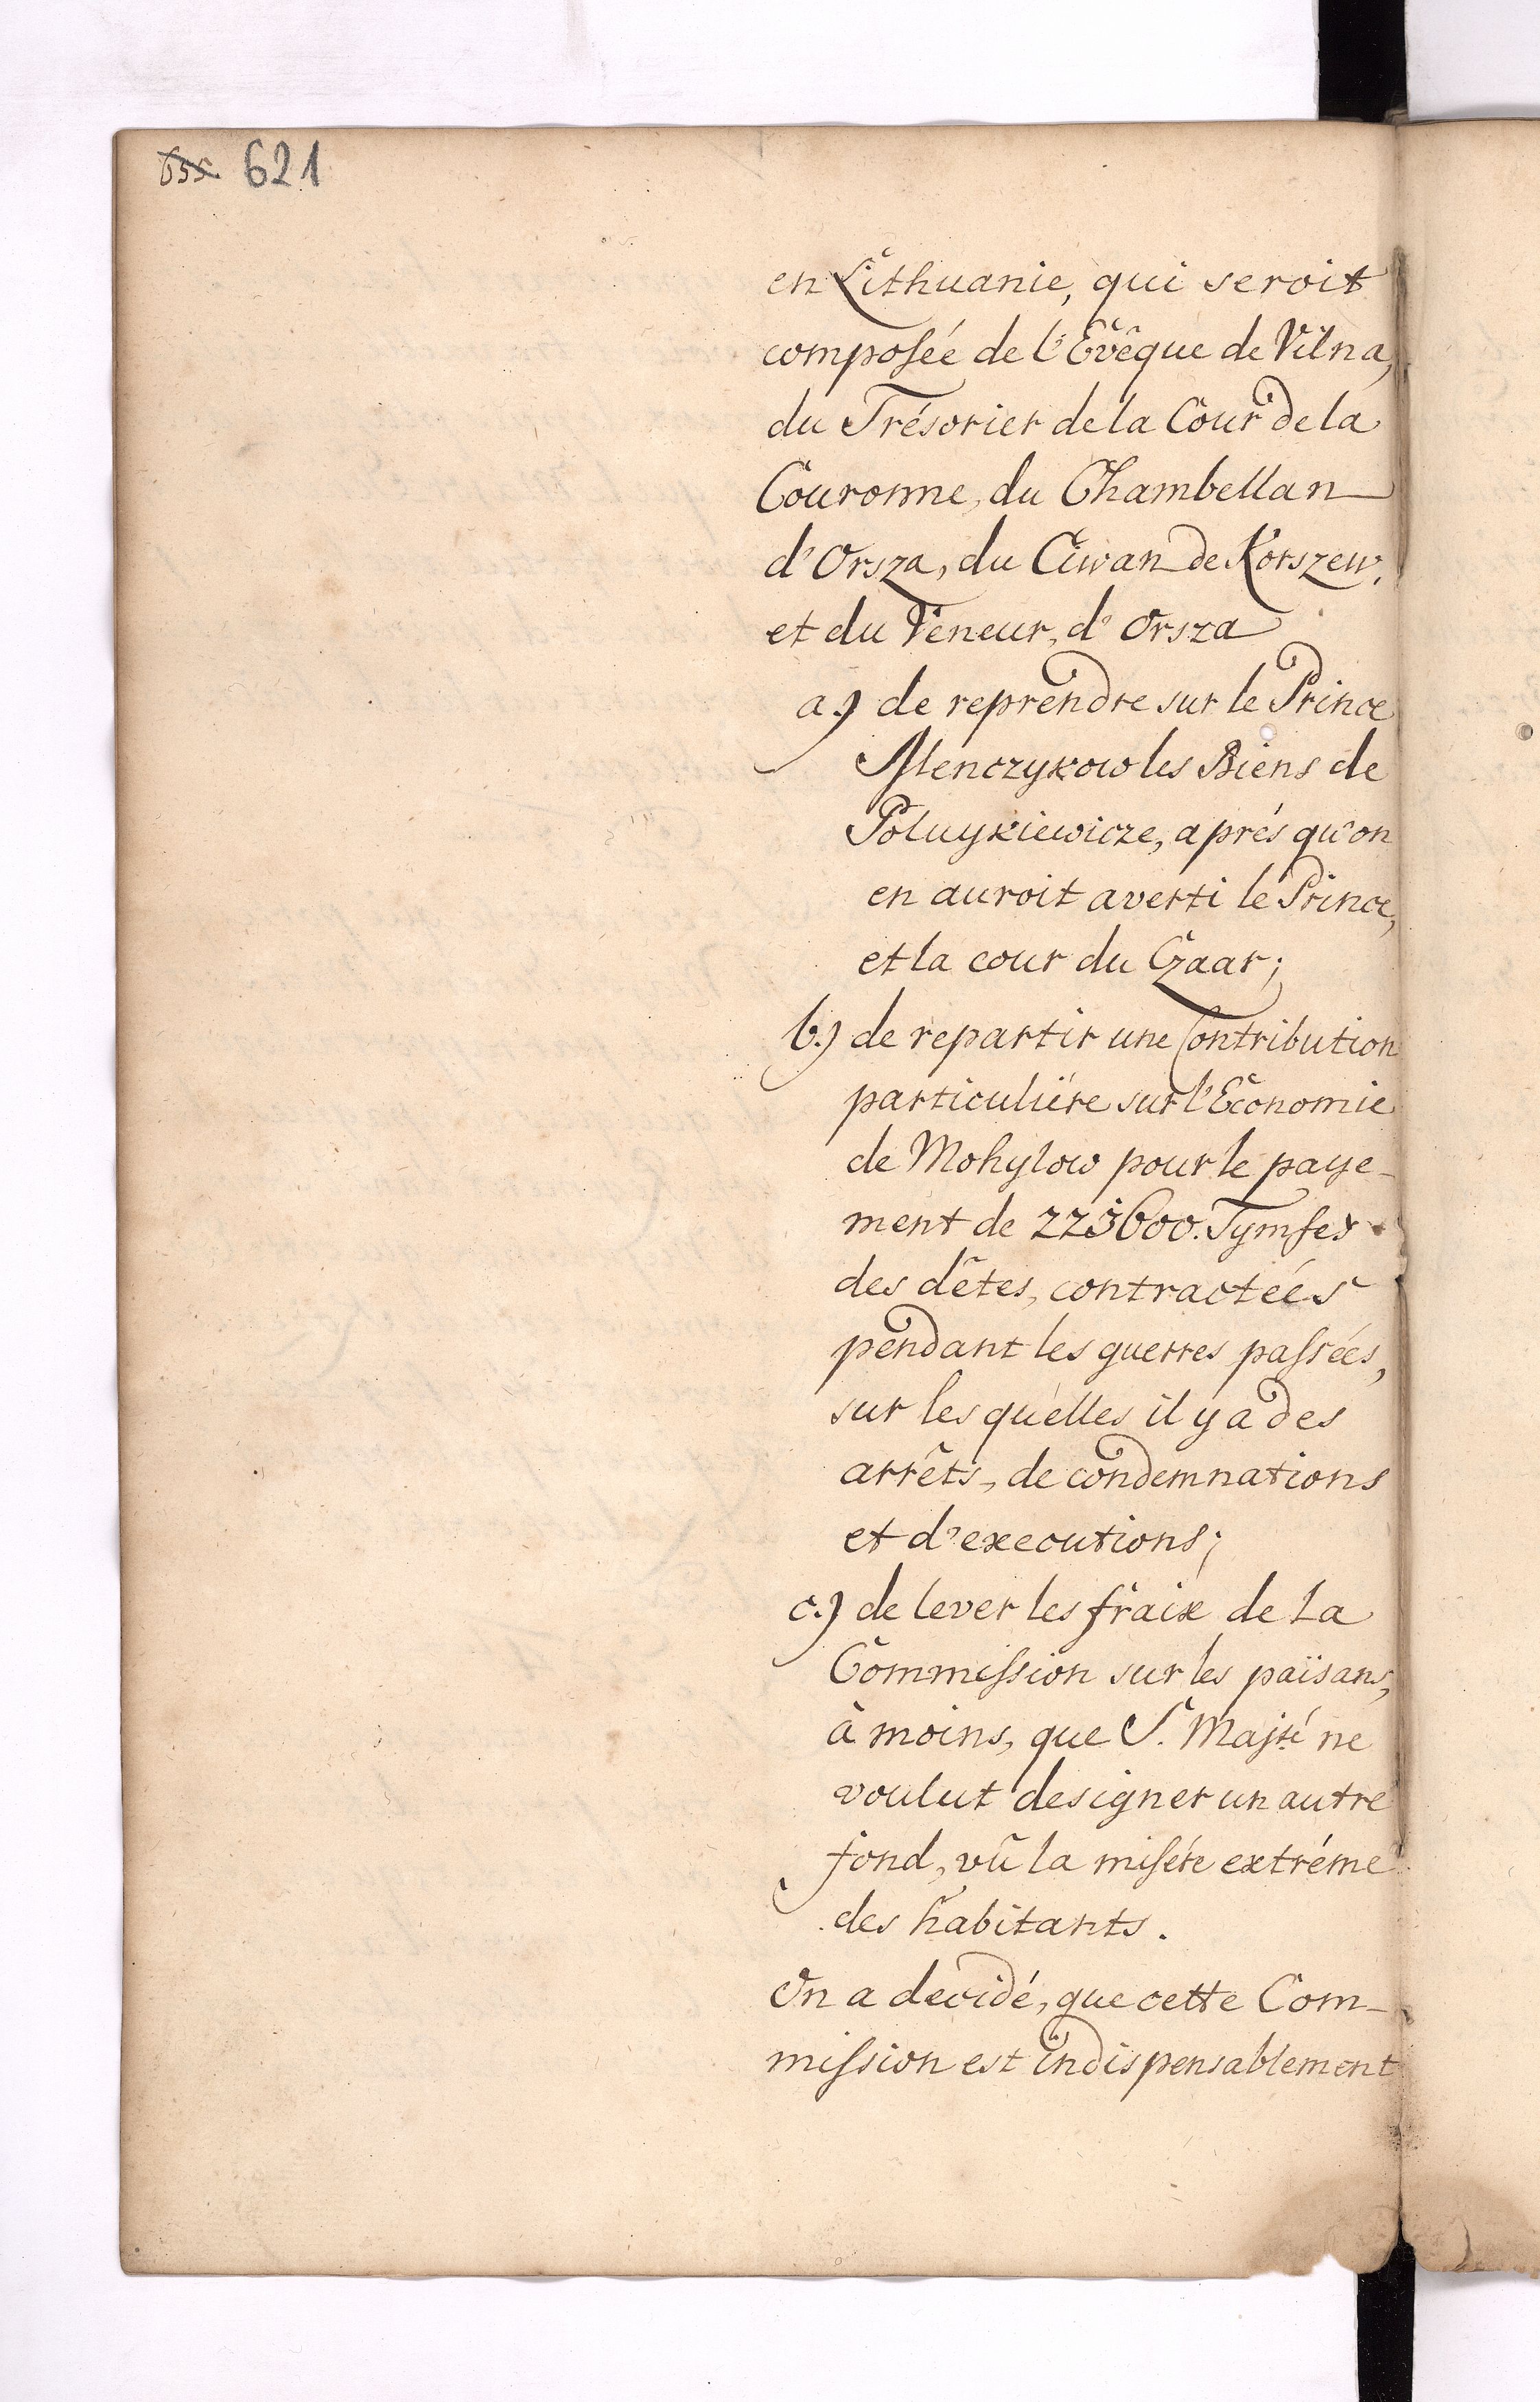 621
en Lithuanie, qui seroit
composée de l'Evêque de Vilna,
du Trésorier de la Cour de la
Couronne, du Chambellan
d'Orsza, du Ciwan de Korszew,
et du Veneur, d'Orsza
a.) de reprendre sur le Prince
Menczykow les Biens de
Poluykiewicze, aprés qu'on
en auroit averti le Prince,
et la cour du Czaar;
b.) de repartir une Contribution
particuliére sur l'Economie
de Mohylow pour le paye-
ment de 223600. Tymfes
des dêtes, contractées
pendant les guerres passées,
sur les quelles il y a des
arrêts, de condemnations
et d'executions;
c.) de lever les fraix de la
Commission sur les païsans,
à moins, que S. Majté ne
voulut designer un autre
fond, vû la misére extréme
des habitants.
On a decidé, que cette Com-
mission est indispensablement